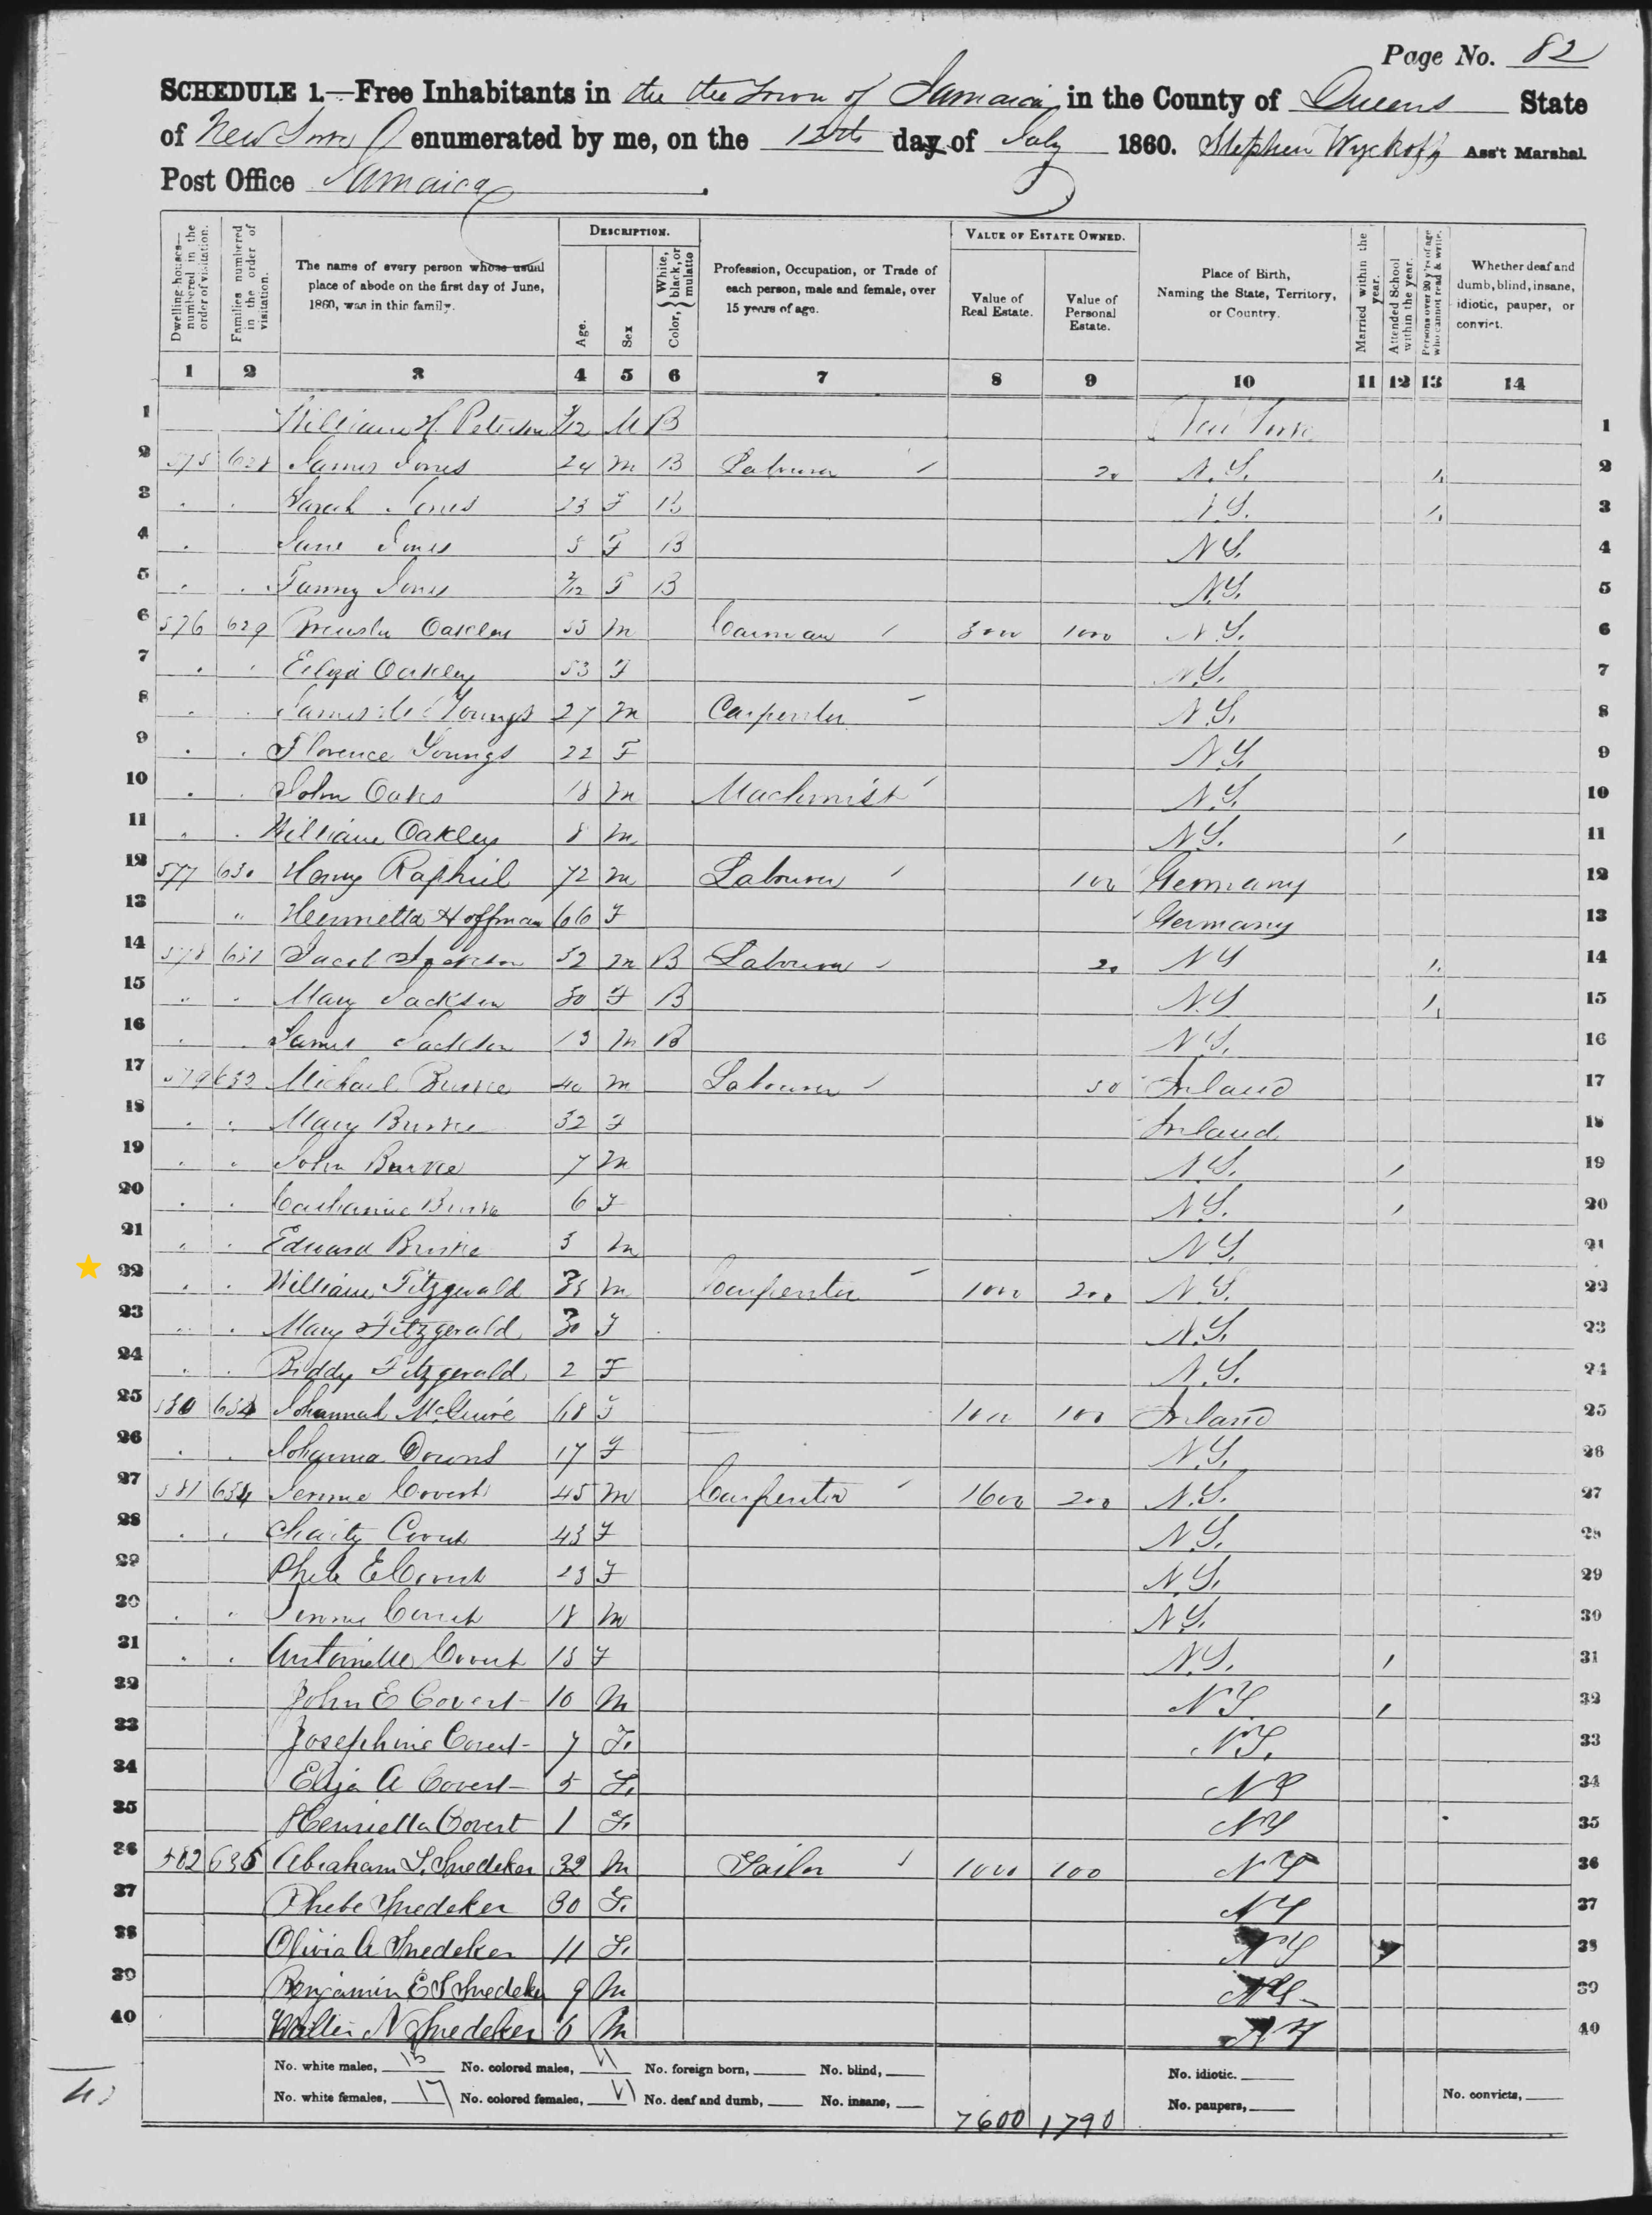 Page No. 82
SCHEDULE 1.—Free Inhabitants in the the Town of Jamaica in the County of Queens State
of New York enumerated by me, on the 12th day of July 1860. Stephen Wyckoff Ass't Marshal
Post Office Jamaica.
Dwelling-houses—numbered in the order of visitation.
Families numbered in the order of visitation.
The name of every person whose usual place of abode on the first day of June, 1860, was in this family.
DESCRIPTION.
Age.
Sex
Color, { White, black, or mulatto
Profession, Occupation, or Trade of each person, male and female, over 15 years of age.
VALUE OF ESTATE OWNED.
Value of Real Estate.
Value of Personal Estate.
Place of Birth, Naming the State, Territory, or Country.
Married within the year.
Attended School within the year.
Persons over 20 y'rs of age who cannot read & write.
Whether deaf and dumb, blind, insane, idiotic, pauper, or convict.
1 2 3 4 5 6 7 8 9 10 11 12 13 14
1 William H. Peterson /12 M B New York 1
2 575 628 James Jones 24 M B Labourer 20 N.Y. 1 2
3 Sarah Jones 23 F B N.Y. 1 3
4 Jane Jones 5 F B N.Y. 4
5 Fanny Jones /12 F B N.Y. 5
6 576 629 Oakley 55 M Carman 3000 1000 N.Y. 6
7 Eliza Oakley 53 F N.Y. 7
8 James Youngs 27 M Carpenter N.Y. 8
9 Florence Youngs 22 F N.Y. 9
10 John Oakes 18 M Machinist N.Y. 10
11 William Oakley 8 M N.Y. / 11
12 577 630 Henry Raphiel 72 M Labourer 100 Germany 12
13 " Henrietta Hoffman 66 F Germany 13
14 578 631 Jacob Jackson 32 M B Labourer 20 N.Y. 1 14
15 Mary Jackson 30 F B N.Y. 1 15
16 James Jackson 13 M B N.Y. 16
17 579 632 Michael Burke 40 M Labourer 50 Ireland 17
18 Mary Burke 32 F Ireland 18
19 John Burke 7 M N.Y. / 19
20 Catharine Burke 6 F N.Y. / 20
21 Edward Burke 3 M N.Y. 21
22 William Fitzgerald 35 M Carpenter 1000 200 N.Y. 22
23 Mary Fitzgerald 30 F N.Y. 23
24 Biddy Fitzgerald 2 F N.Y. 24
25 580 634 Johannah McGuire 68 F 1000 100 Ireland 25
26 Johanna Downs 17 F N.Y. 26
27 581 634 Jerome Covert 45 M Carpenter 1600 200 N.Y. 27
28 Charity Covert 43 F N.Y. 28
29 Phebe E Covert 23 F N.Y. 29
30 Jerome Covert 18 M N.Y. 30
31 Antoinette Covert 15 F N.Y. / 31
32 John E Covert 10 M N.Y. / 32
33 Josephine Covert 7 F. N.Y. 33
34 Eliza A Covert 5 F. N.Y 34
35 Henrietta Covert 1 F. N.Y 35
36 582 635 Abraham S. Snedeker 32 M Sailor 1000 100 N.Y 36
37 Phebe Snedeker 30 F. N.Y 37
38 Olivia A Snedeker 11 F. N.Y 38
39 Benjamin E S Snedeker 9 M N.Y. 39
40 Walter N Snedeker 6 M N.Y 40
No. white males, 15 No. colored males, No. foreign born, No. blind, No. idiotic.
No. white females, 17 No. colored females, No. deaf and dumb, No. insane, No. paupers, No. convicts,
7600 1790